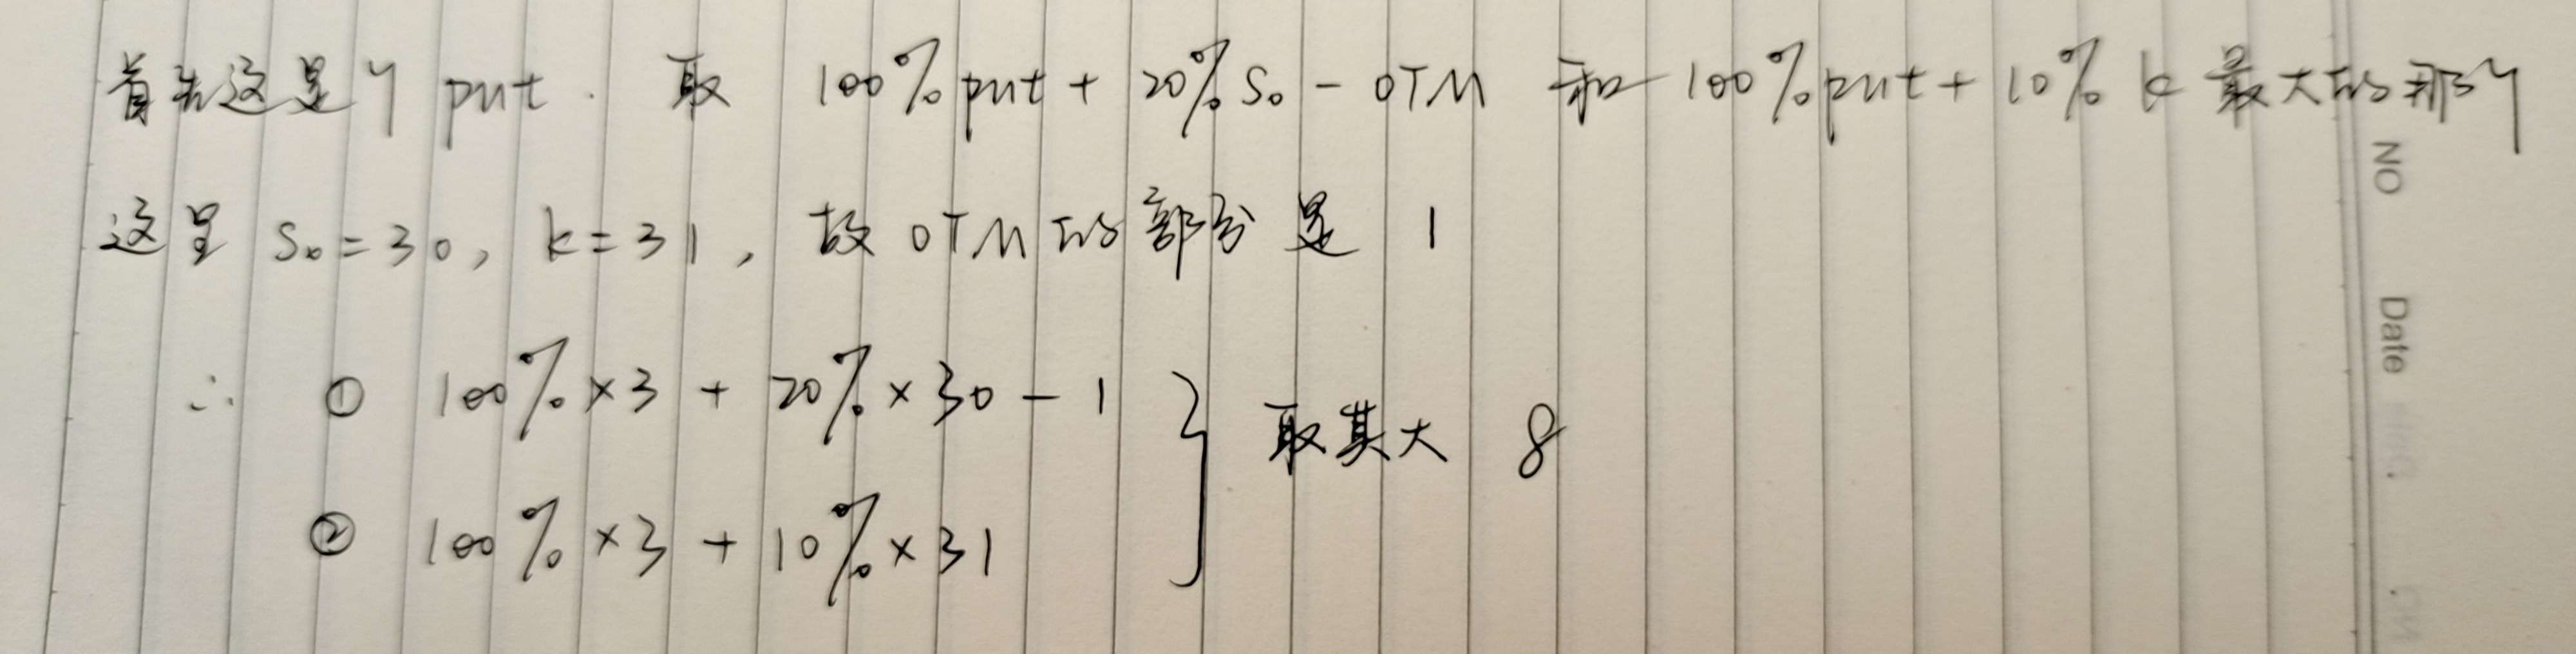 首先这是个 put. 取 100% put + 20% S₀ - OTM 和 100% put + 10% k 最大的那个
这里 S₀ = 30, k = 31, 故 OTM 的部分是 1
∴ ① 100% × 3 + 20% × 30 - 1 } 取其大 8
② 100% × 3 + 10% × 31
NO
Date